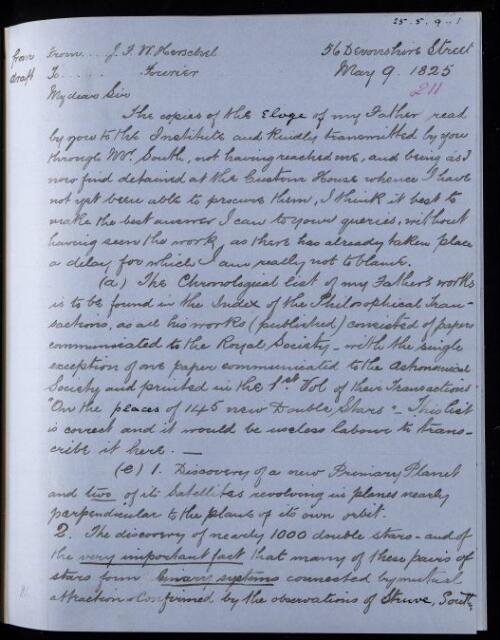 25.5.9..1
from From.... J. F. W. Herschel 56 Devonshire Street
draft To...... Fourier May 9. 1825
211
My dear Sir
The copies of the Eloge of my Father read
by you to the Institute and kindly transmitted by you
through Mr. South, not having reached me, and being as I
now find detained at the Custom House whence I have
not yet been able to procure them, I think it best to
make the best answer I can to your queries, without
having seen the work, as there has already taken place
a delay for which I am really not to blame.
(a) The Chronological list of my Father's works
is to be found in the Index of the Philosophical Tran-
sactions, as all his works (published) consisted of papers
communicated to the Royal Society - with the single
exception of one paper communicated to the Astronomical
Society and printed in the 1st Vol of their Transactions
"On the places of 145 new Double Stars" - This list
is correct and it would be useless labour to trans-
cribe it here. —
(e) 1. Discovery of a new Primary Planet
and two of its Satellites revolving in planes nearly
perpendicular to the plane of its own orbit.
2. The discovery of nearly 1000 double stars - and of
the very important fact that many of these pairs of
stars form binary systems connected by mutual
attraction & confirmed by the observations of Struve, South,